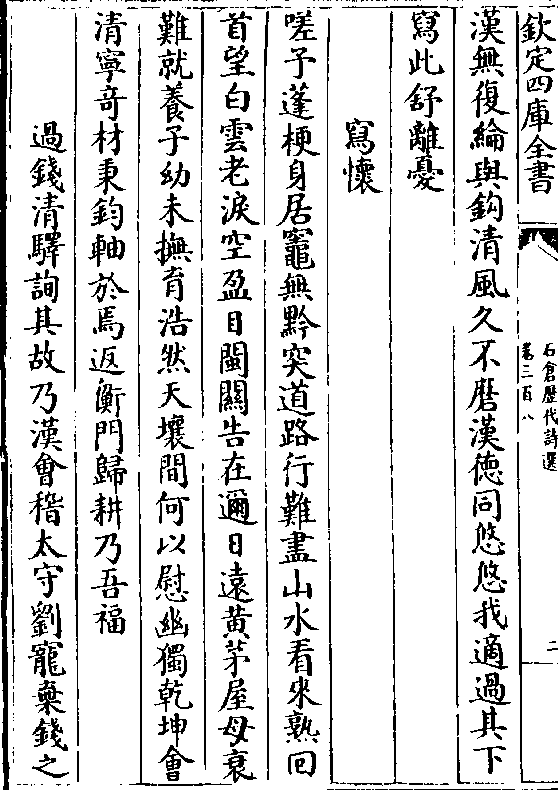 欽定四庫全書
石倉歷代詩選
卷三百八
二
漢無復綸與鈎清風久不磨漢德同悠悠我適過其下
寫此舒離憂
寫懷
嗟予蓬梗身居竈無黔突道路行難盡山水看來熟回
首望白雲老淚空盈目閩關告在邇日遠黄茅屋母衰
難就養子幼未撫育浩然天壤間何以慰幽獨乾坤會
清寧竒材秉鈞軸於焉返衡門歸耕乃吾福
過錢清驛詢其故乃漢會稽太守劉寵棄錢之